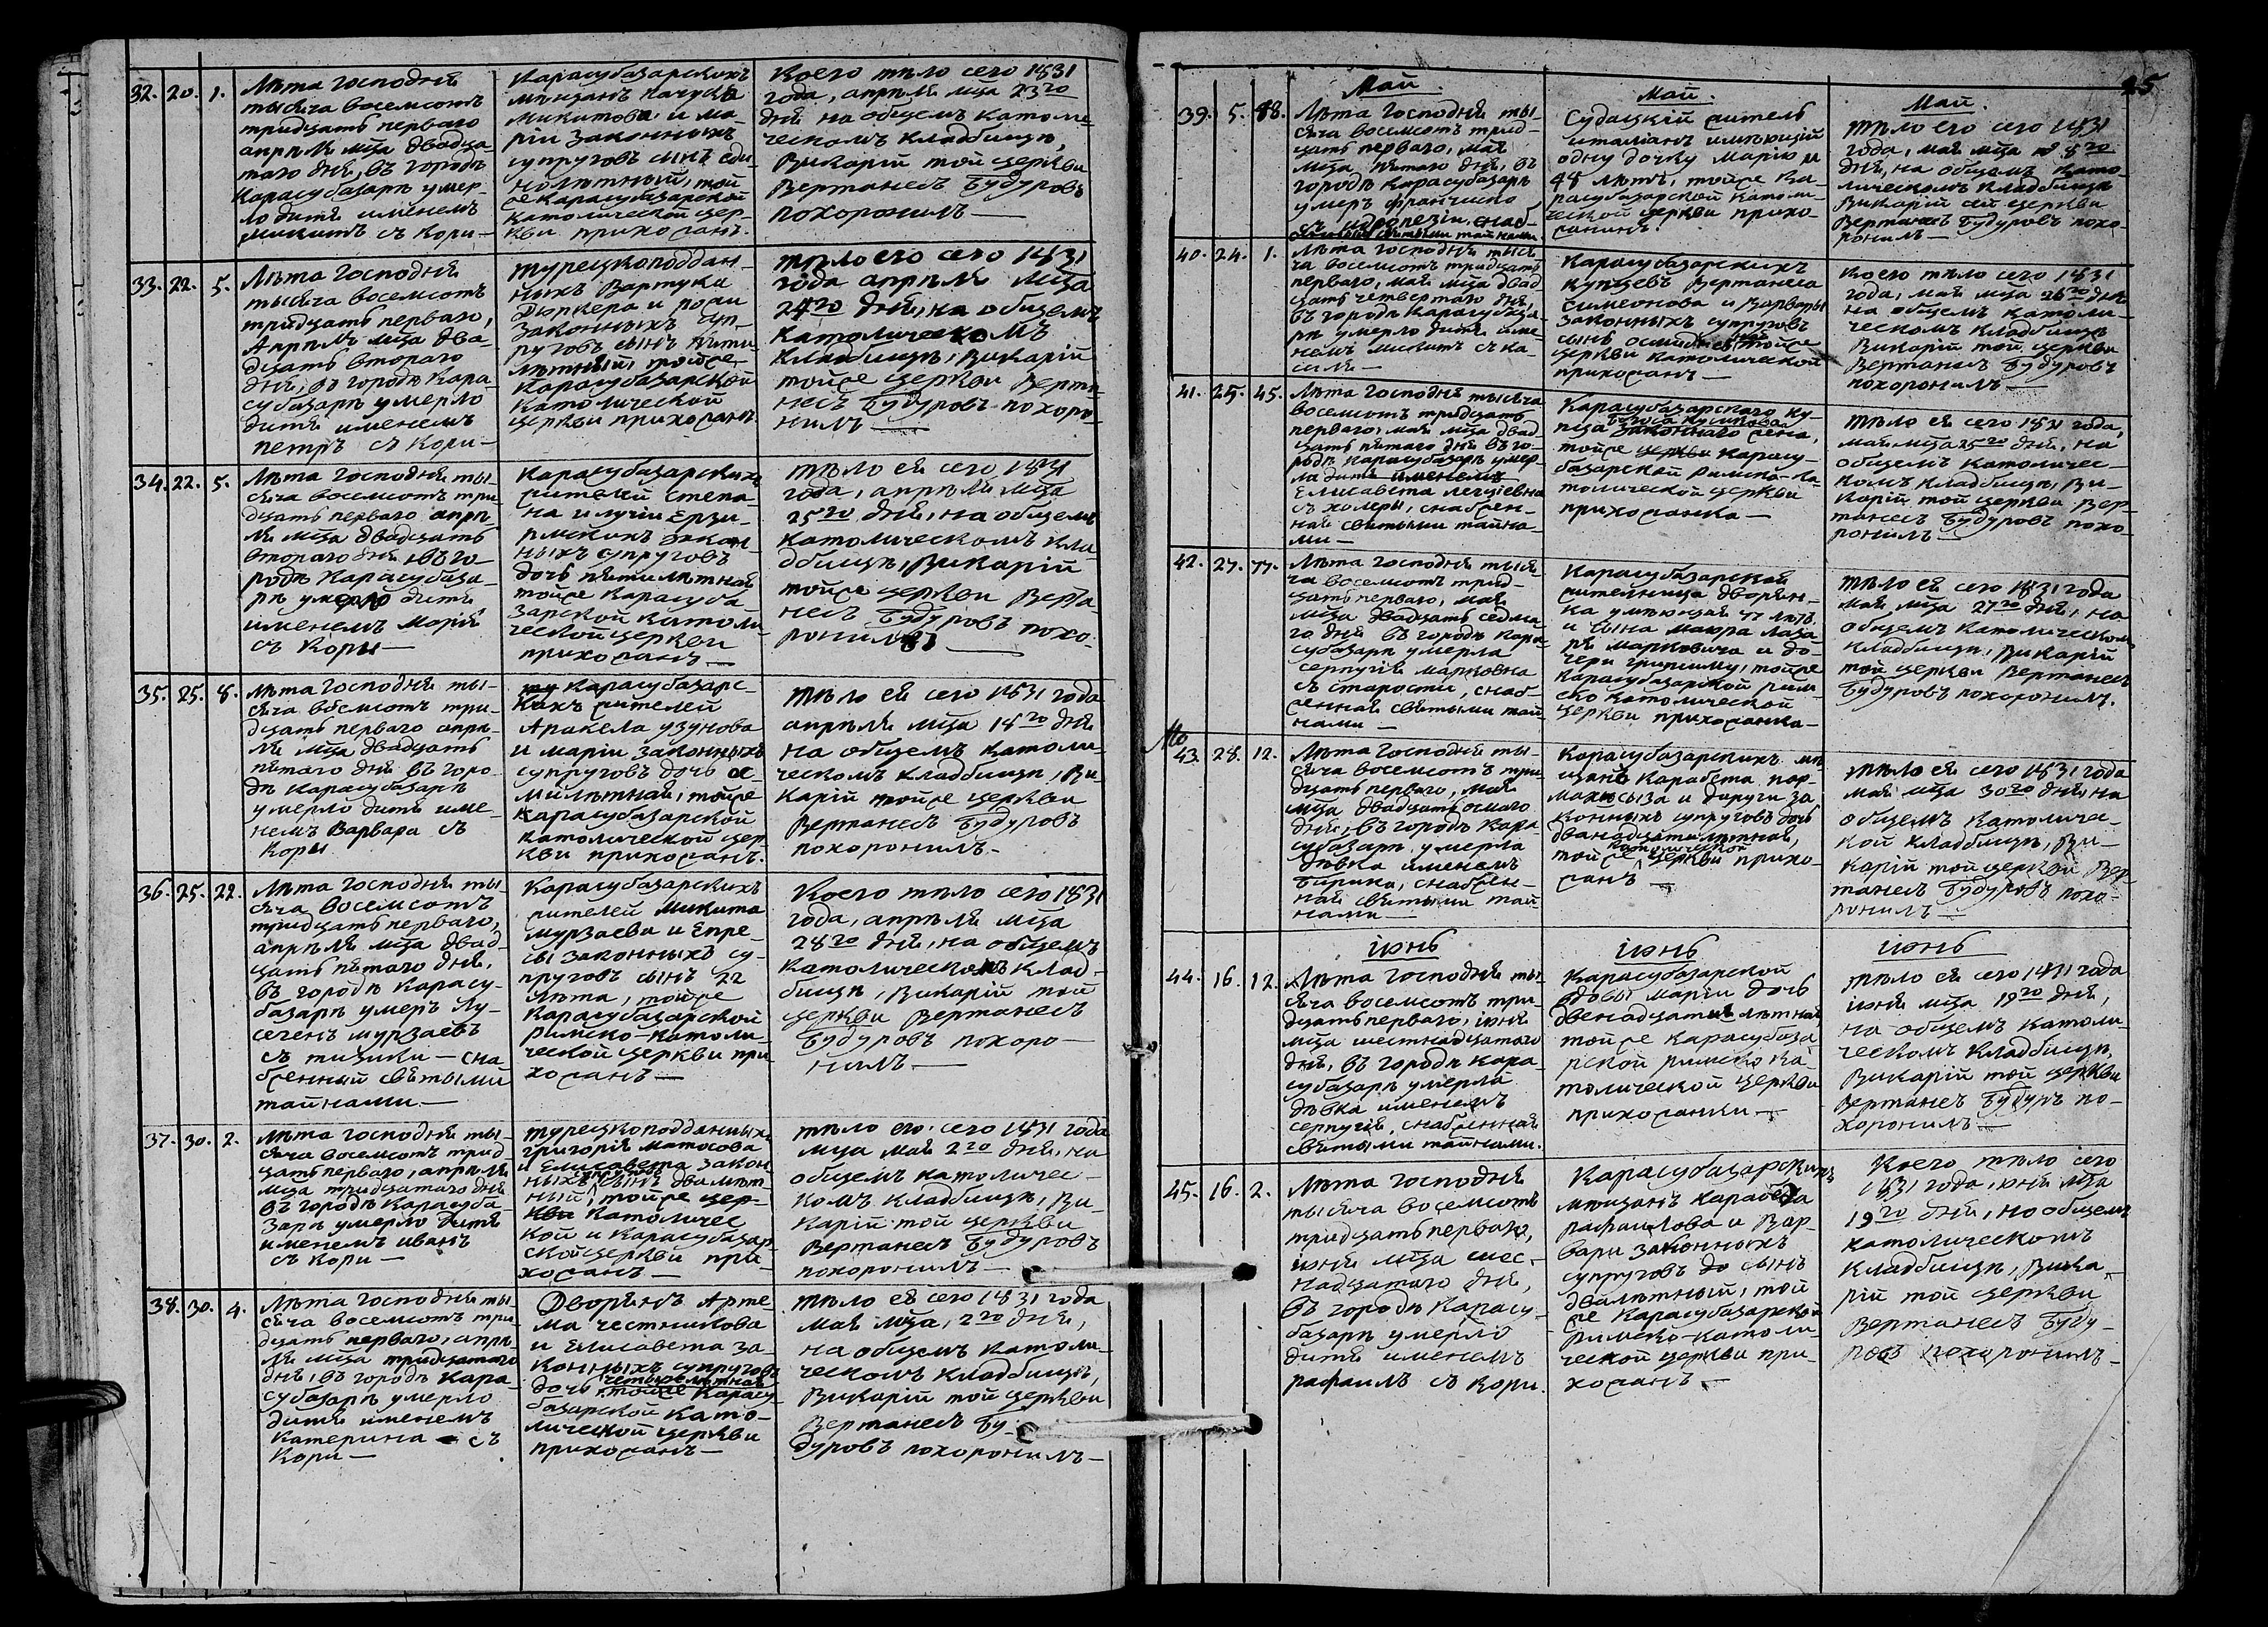 32. 20. 1.
Лѣта Господня
тысяча восемсотъ
тридцать перваго
апрѣля мѣца двадца-
таго дня, въ городѣ
Карасубазарѣ умер-
ло дитя именемъ
Микитъ съ Кори—
Карасубазарскихъ
мѣщанъ
Микитова и Ма-
ріи законныхъ
супруговъ сынъ еди-
нолѣтный, той
же Карасубазарской
католической цер-
кви прихожанъ.
Коего тѣло сего 1831
года, апрѣля мѣца 23го
дня на общемъ католи-
ческомъ кладбищѣ,
Викарій той церкви
Вертанесъ Будуровъ
похоронилъ—
33. 22. 5.
Лѣта Господня
тысяча восемсотъ
тридцать перваго,
Апрѣля мѣца два-
дцать втораго
дня, въ городѣ Кара-
субазарѣ умерло
дитя именемъ
петръ съ Кори—
турецкоподдан-
ныхъ Вартука
Дюркера и
законныхъ суп-
руговъ сынъ пяти
лѣтный, тойже
Карасубазарской
католической
церкви прихожанъ
тѣло его сего 1831
года апрѣля мѣца
24го дня, на общемъ
католическомъ
кладбищѣ, Викарій
тойже церкви Верта
несъ Будуровъ похоро-
нилъ—
34. 22. 5.
Лѣта Господня ты-
сяча восемсотъ три
дцать перваго апрѣ-
ля мѣца двадцать
втораго дня въ го-
родѣ Карасубаза-
рѣ умерло дитя
именемъ Марія
съ Кори—
Карасубазарскихъ
жителей Степа
на и лучіи Ерзи-
рмскихъ закон-
ныхъ супруговъ
дочь пятилѣтная
тойже Карасуба
зарской католи
ческой церкви
прихожанъ—
тѣло ея сего 1831
года, апрѣля мѣца
25го дня, на общемъ
католическомъ кла-
дбищѣ, Викарій
тойже церкви Верта-
несъ Будуровъ похо-
ронилъ—
35. 25. 8.
Лѣта Господня ты-
сяча восемсотъ три-
дцать перваго апрѣ-
ля мѣца двадцать
пятаго дня въ горо-
дѣ Карасубазарѣ
умерло дитя име-
немъ Варвара съ
Коры
Карасубазарс-
кихъ жителей
Аракела узунова
и маріи законныхъ
супруговъ дочь ос-
милѣтная, тойже
Карасубазарской
католической цер-
кви прихожанъ.
тѣло ея сего 1831 года
апрѣля мѣца 18го дня
на общемъ католи-
ческомъ кладбищѣ, Ви-
карій тойже церкви
Вертанесъ Будуровъ
похоронилъ—
36. 25. 22.
Лѣта Господня ты-
сяча восемсотъ
тридцать перваго,
апрѣля мѣца двад-
цать пятаго дня,
въ городѣ Карасу-
базарѣ умеръ Лу-
сегенъ мурзаевъ
съ тизики—сна
бженный святыми
тайнами—
Карасубазарскихъ
жителей Микита
мурзаева и Епре-
сы законныхъ су-
пруговъ сынъ 22
лѣта, тойже
Карасубазарской
Римско-католи-
ческой церкви при
хожанъ—
Коего тѣло сего 1831
года, апрѣля мѣца
28го дня, на общемъ
католическомъ клад-
бищѣ, Викарій той
церкви Вертанесъ
Будуровъ похоро-
нилъ—
37. 30. 2.
Лѣта Господня ты-
сяча восемсотъ трид
цать перваго, апрѣля
мѣца тридцатаго дня
въ городѣ Карасуба-
зарѣ умерло дитя
именемъ иванъ
съ Кори—
турецкоподданныхъ
григорія матосова
и Елисавета закон-
ныхъ супруговъ сынъ двалѣт-
ный, тойже цер-
кви католичес
кой и Карасубазар
ской церкви при-
хожанъ—
тѣло его сего 1831 года
мца мая 2го дня, на
общемъ католичес-
комъ кладбищѣ, Ви-
карій той церкви
Вертанесъ Будуровъ
похоронилъ—
38. 30. 4.
Лѣта Господня ты-
сяча восемсотъ три
дцать перваго, апрѣ-
ля мѣца тридцатаго
дня, въ городѣ Кара-
субазарѣ умерло
дитя именемъ
Катерина — съ
Кори—
Дворянъ Арте
ма честникова
и Елисавета за-
конныхъ супруговъ
дочь четырелѣтная тойже Карасу
базарской като-
лической церкви
прихожанъ—
тѣло ея сего 1831 года
мая мѣца, 2го дня,
на общемъ католи-
ческомъ кладбищѣ,
Викарій той церкви
Вертанесъ Бу-
дуровъ похоронилъ—
25
Май
Май.
Май.
39. 5. 48.
Лѣта Господня ты-
сяча восемсотъ трид-
цать перваго, мая
мѣца пятаго дня, въ
городѣ Карасубазарѣ
умеръ франчиско
съ снаб-
женный святыми тайнами
Судацкій житель
италіанъ имѣющій
одну дочку марію и
48 лѣтъ, тойже Ка-
расубазарской католи-
ческой церкви прихо
жанинъ.
тѣло его сего 1831
года, мая мѣца 8го
дня, на общемъ като-
лическомъ кладбищѣ
Викарій сей церкви
Вертанесъ Будуровъ похо-
ронилъ—
40. 24. 1.
Лѣта Господня тыся
ча восемсотъ тридцать
перваго, мая мѣца двад
цать четвертаго дня,
въ городѣ Карасубаза-
рѣ умерло дитя име
немъ микитъ съ ка-
Карасубазарскихъ
купцевъ Вертанеса
симеонова и Варвары
законныхъ супруговъ
сынъ тойже
церкви католической
прихожанъ—
Коего тѣло сего 1831
года, мая мѣца 26го дня
на общемъ католи-
ческомъ кладбищѣ
Викарій той церкви
Вертанесъ Будуровъ
похоронилъ—
41. 25. 45.
Лѣта Господня тысяча
восемсотъ тридцать
перваго, мая мѣца двад-
цать пятаго дня въ го-
родѣ Карасубазарѣ умер-
ла дитя именемъ
Елисавета
съ холеры, снабжен-
ная святыми тайна-
ми—
Карасубазарскаго ку-
пца законнаго жена,
тойже церкви Карасу-
базарской римско-ка-
толической церкви
прихожанка—
тѣло ея сего 1831 года,
мая мѣца 25го дня, на
общемъ католичес-
комъ кладбищѣ, Ви-
карій той церкви Вер-
танесъ Будуровъ похо-
ронилъ—
42. 27. 77.
Лѣта Господня тыся-
ча восемсотъ трид-
цать перваго, мая
мѣца двадцать седма-
го дня въ городѣ Кара-
субазарѣ умерла
серпугія марковна
съ старости, снаб-
женная святыми тай
нами—
Карасубазарской
жительница дворян-
ка умѣющая 77 лѣтъ.
и сына маюра лаза-
ря марковича и до-
чери тойже
Карасубазарской рим-
ско католической
церкви прихожанка—
тѣло ея сего 1831 года
мая мѣца 27го дня, на
общемъ католическомъ
кладбищѣ, Викарій
той церкви Вертанесъ
Будуровъ похоронилъ.
43. 28. 12.
Лѣта Господня ты-
сяча восемсотъ три-
дцать перваго, мая
мѣца двадцать осмаго
дня, въ городѣ Кара
субазарѣ умерла
дѣвка именемъ
снабжен-
ная святыми тай-
нами—
Карасубазарскихъ мѣ
щанъ Карабета
и за-
конныхъ супруговъ дочь
дванадцатилѣтная,
тойже католической церкви прихо-
жанъ—
тѣло ея сего 1831 года
мая мѣца 30го дня, на
общемъ католичес-
кой кладбищѣ, Ви-
карій той церкви Вер-
танесъ Будуровъ похо-
ронилъ—
іюнь
іюнь
іюнь
44. 16. 12.
Лѣта Господня ты
сяча восемсотъ три-
дцать перваго, іюня
мѣца шестнадцатаго
дня, въ городѣ Кара
субазарѣ умерла
дѣвка именемъ
серпугія, снабженная
святыми тайнами.
Карасубазарской
вдовы маріи дочь
двенадцати лѣтная
тойже Карасубаза
рской римско ка-
толической церкви
прихожанки—
тѣло ея сего 1831 года
іюня мѣца 19го дня,
на общемъ католи-
ческомъ кладбищѣ,
Викарій той церкви
Вертанесъ Будуръ по-
хоронилъ—
45. 16. 2.
Лѣта Господня
тысяча восемсотъ
тридцать перваго,
іюня мѣца шес-
надцатаго дня,
въ городѣ Карасу-
базарѣ умерло
дитя именемъ
рафаилъ съ Кори.
Карасубазарскихъ
мѣщанъ Карабета
рафаилова и Вар-
вари законныхъ
супруговъ до сынъ
двалѣтный, той
же Карасубазарской
Римско-католи-
ческой церкви при-
хожанъ—
Коего тѣло сего
1831 года, юня мѣца
19го дня, на общемъ
католическомъ
кладбищѣ, Вика-
рій той церкви
Вертанесъ Буду-
ровъ похоронилъ—